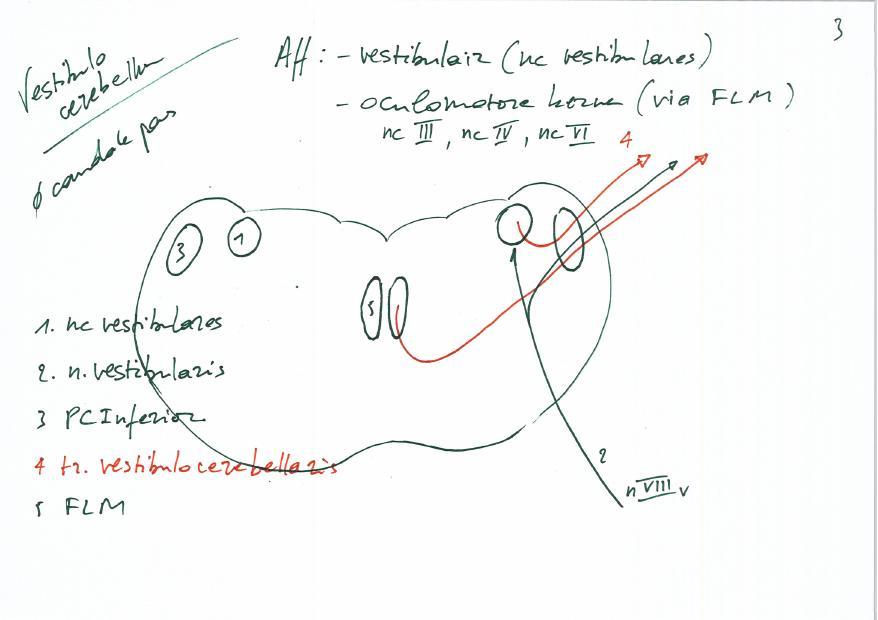 3
Vestibulo
cerebellum
Aff: - vestibulair (nc vestibulares)
- oculomotore kerne (via FLM)
nc III, nc IV, nc VI
caudale pons
4
3
1
5
1. nc vestibulares
2. n. vestibularis
3 PCInferior
4 tr. vestibulocerebellaris
5 FLM
2
n VIII v